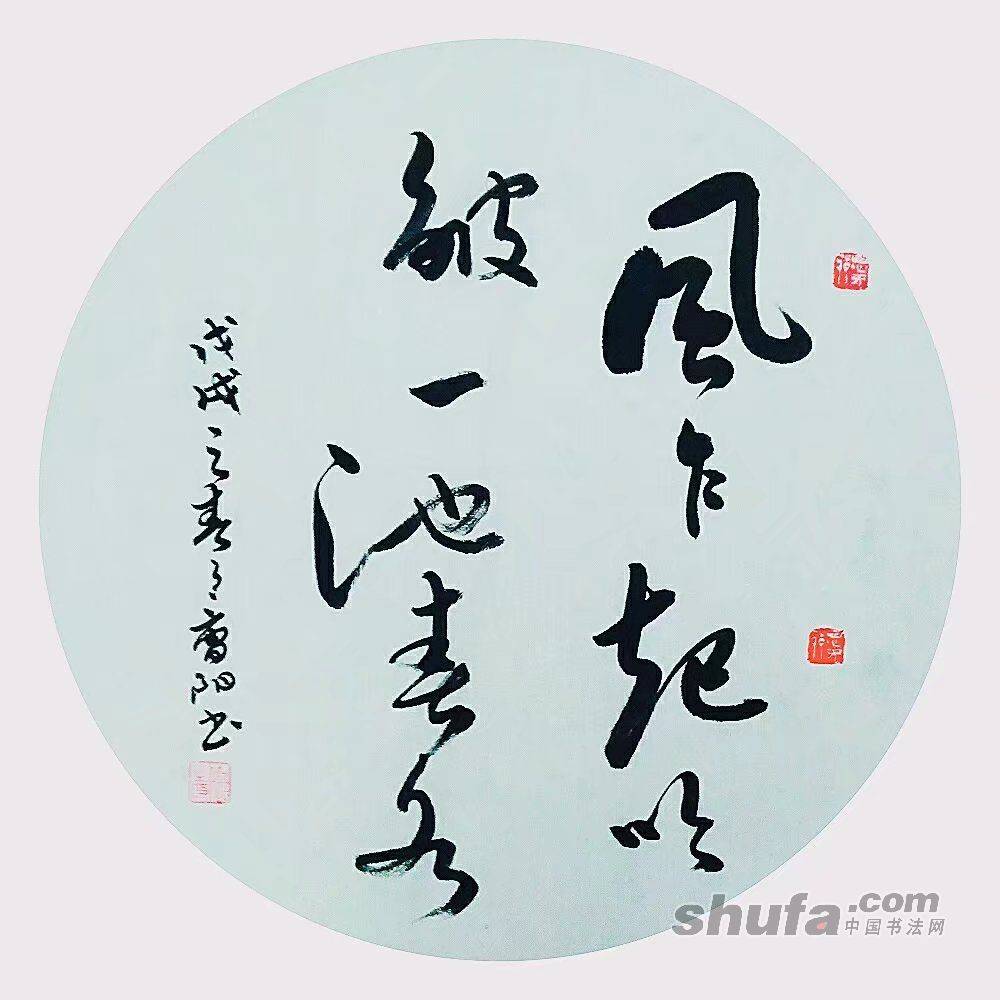 風乍起吹
皺一池春水
戊戌之春 阳书
shufa.com
中国书法网